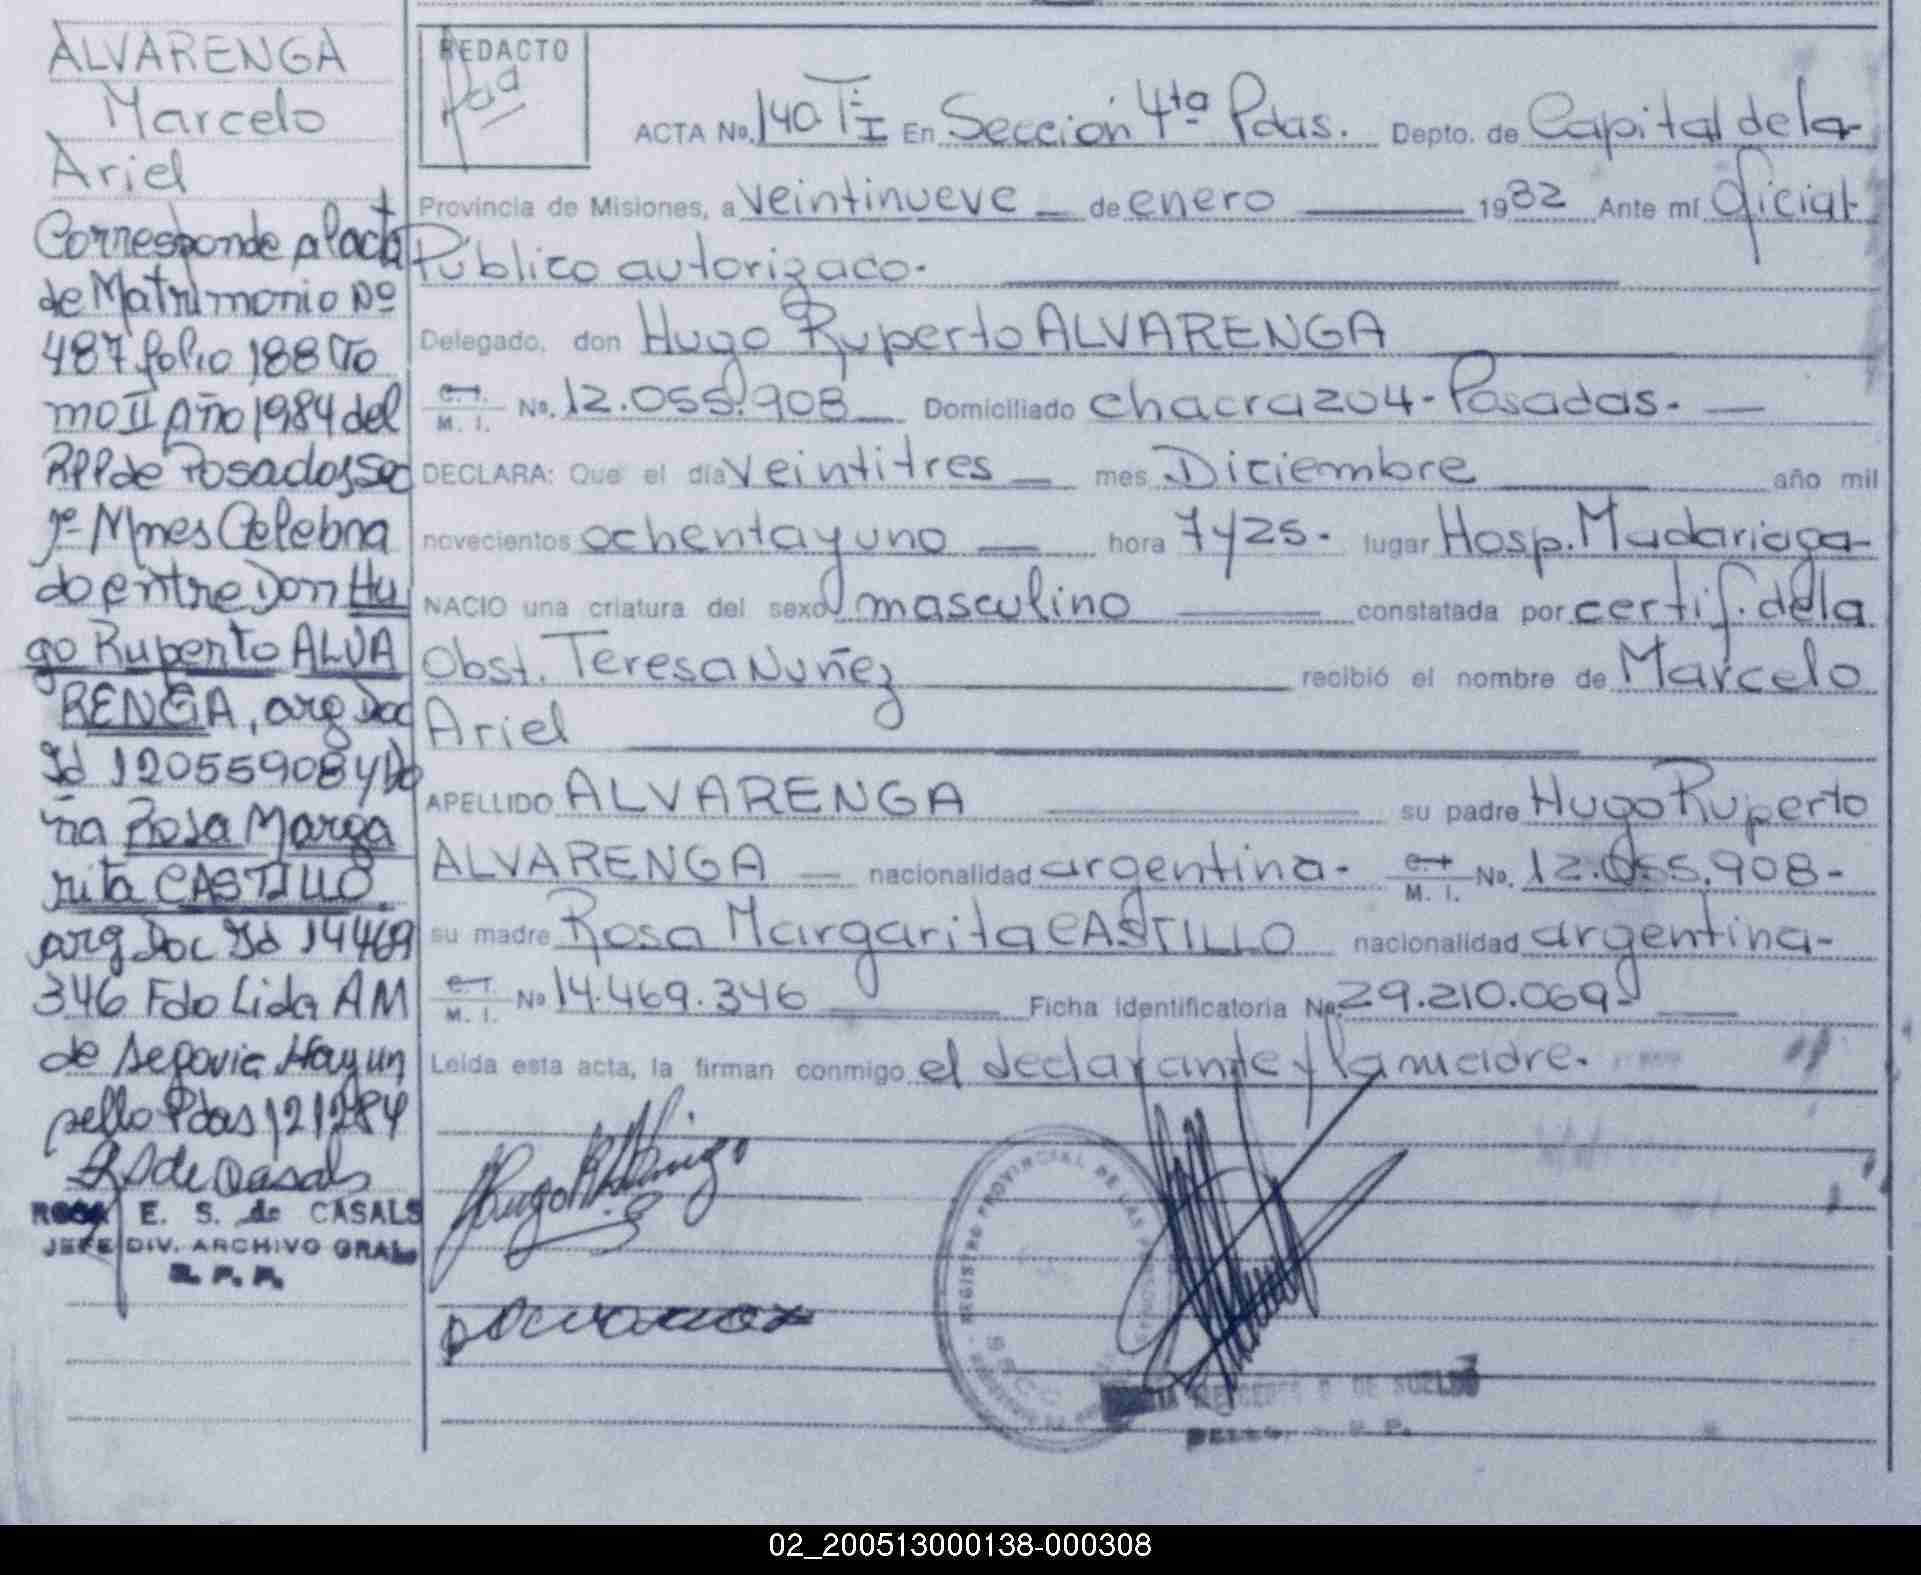 ALVARENGA
Marcelo
Ariel
Corresponde al acta
de Matrimonio Nº
487 folio 188 To
mo II Año 1984 del
RPP de Posadas Sec
1º Mnes Celebra
do entre Don Hu
go Ruperto ALVA
RENGA, arg Doc
Id 12055908 y Do
ña Rosa Marga
rita CASTILLO.
arg Doc Id 14469
346 Fdo Lida AM
de Segovia Hay un
sello Pdas 121284
RS de Casals
ROSA E. S. de CASALS
JEFE DIV. ARCHIVO GRAL.
R. P. P.
REDACTO
ACTA No. 140 TºI En Sección 4ta Pdas. Depto. de Capital de la
Provincia de Misiones, a veintinueve de enero 1982 Ante mí Oficial
Público autorizado.
Delegado, don Hugo Ruperto ALVARENGA
C. I. M. I. No. 12.055.908 Domiciliado chacra 204 - Posadas.
DECLARA: Que el día veintitres mes Diciembre año mil
novecientos ochenta y uno hora 7 y 25. lugar Hosp. Madariaga
NACIO una criatura del sexo masculino constatada por certif. de la
Obst. Teresa Nuñez recibió el nombre de Marcelo
Ariel
APELLIDO ALVARENGA su padre Hugo Ruperto
ALVARENGA nacionalidad argentina - C. I. M. I. No. 12.055.908 -
su madre Rosa Margarita CASTILLO nacionalidad argentina -
C. I. M. I. No 14.469.346 Ficha identificatoria No. 29.210.069
Leída esta acta, la firman conmigo el declarante y la madre.
REGISTRO PROVINCIAL DE LAS PERSONAS
DE SUELDO
02_200513000138-000308